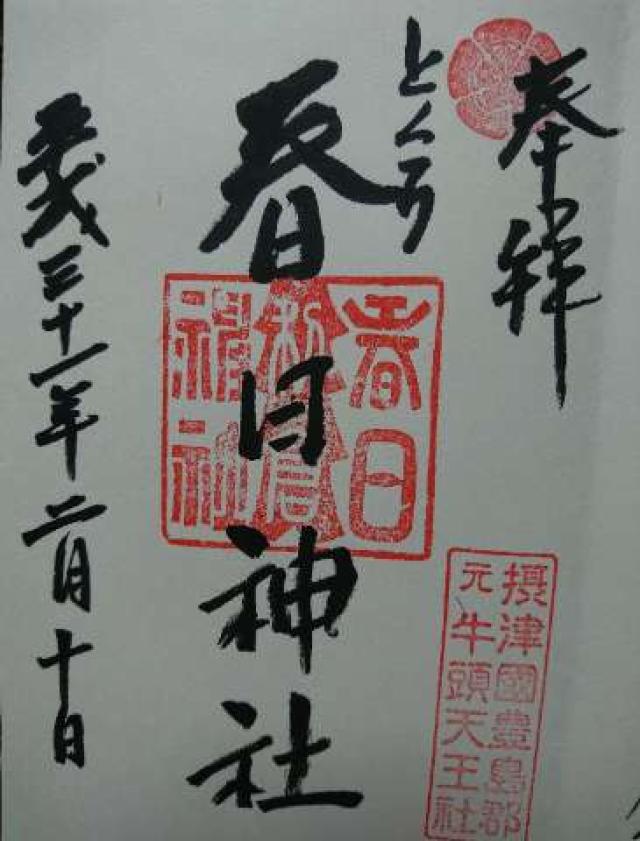 奉拝
とくら
春日神社
春日
利倉
神社
摂津國豊島郡
元牛頭天王社
平成三十一年二月十日